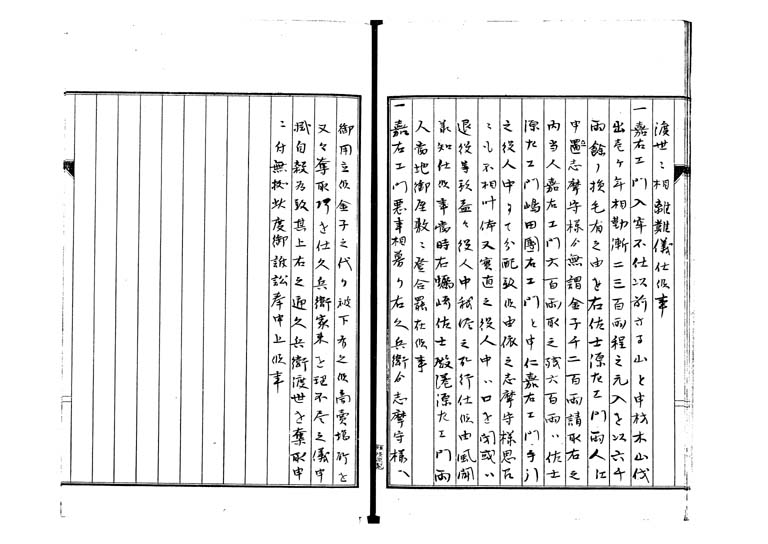 渡世ニ相離難儀仕候事
一嘉右エ門入牢不仕以前六子山と申材木山伐
出壱ケ年相勤漸二三百両程之元入を以六千
両餘ノ損毛有之由を右佐士源左エ門両人江
申置志摩守様ゟ無謂金子千二百両請取右之
内当人嘉左エ門六百両取之残六百両ハ佐士
源左エ門嶋田團右エ門と申仁嘉右エ門手引
之役人中ニて分配致候由依之志摩守様思召
ニも不相叶候又實直之役人中ハ口を閉或ハ
退役等致益々役人中我儘之取行仕候由風聞
承知仕候事當時右嘱崎佐士殿港源左エ門両
人當地御屋敷ニ登合罷在候事
一嘉右エ門悪事相募リ右久兵衛ゟ志摩守様ヘ
御用立候金子之代リ被下有之候商賣場所を
又々奪取可仕久兵衛家来を理不尽之儀申
掛自殺為致其上右之通久兵衛渡世を奪取申
ニ付無拠此度御訴訟奉申上候事